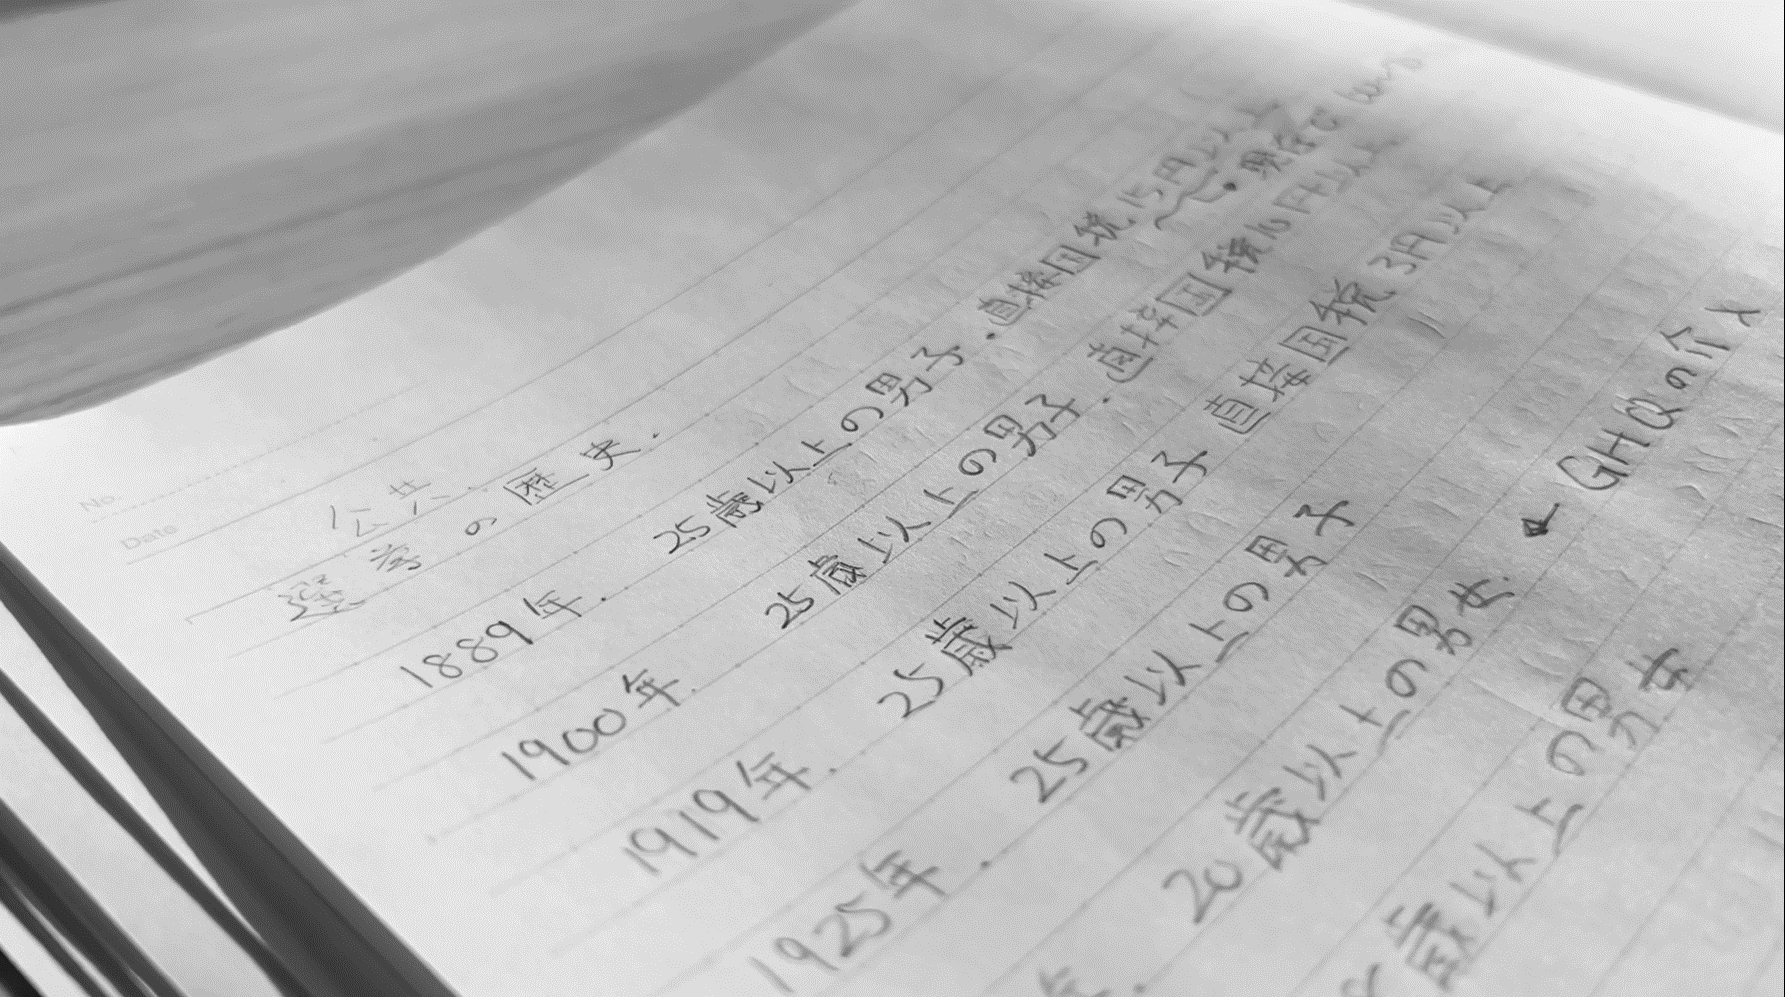 No.
Date
公共
選挙の歴史.
1889年. 25歳以上の男子.直接国税15円以上
現在の
1900年. 25歳以上の男子.直接国税10円以上
1919年. 25歳以上の男子 直接国税3円以上
1925年. 25歳以上の男子
年. 20歳以上の男女. ← GHQの介入
歳以上の男女